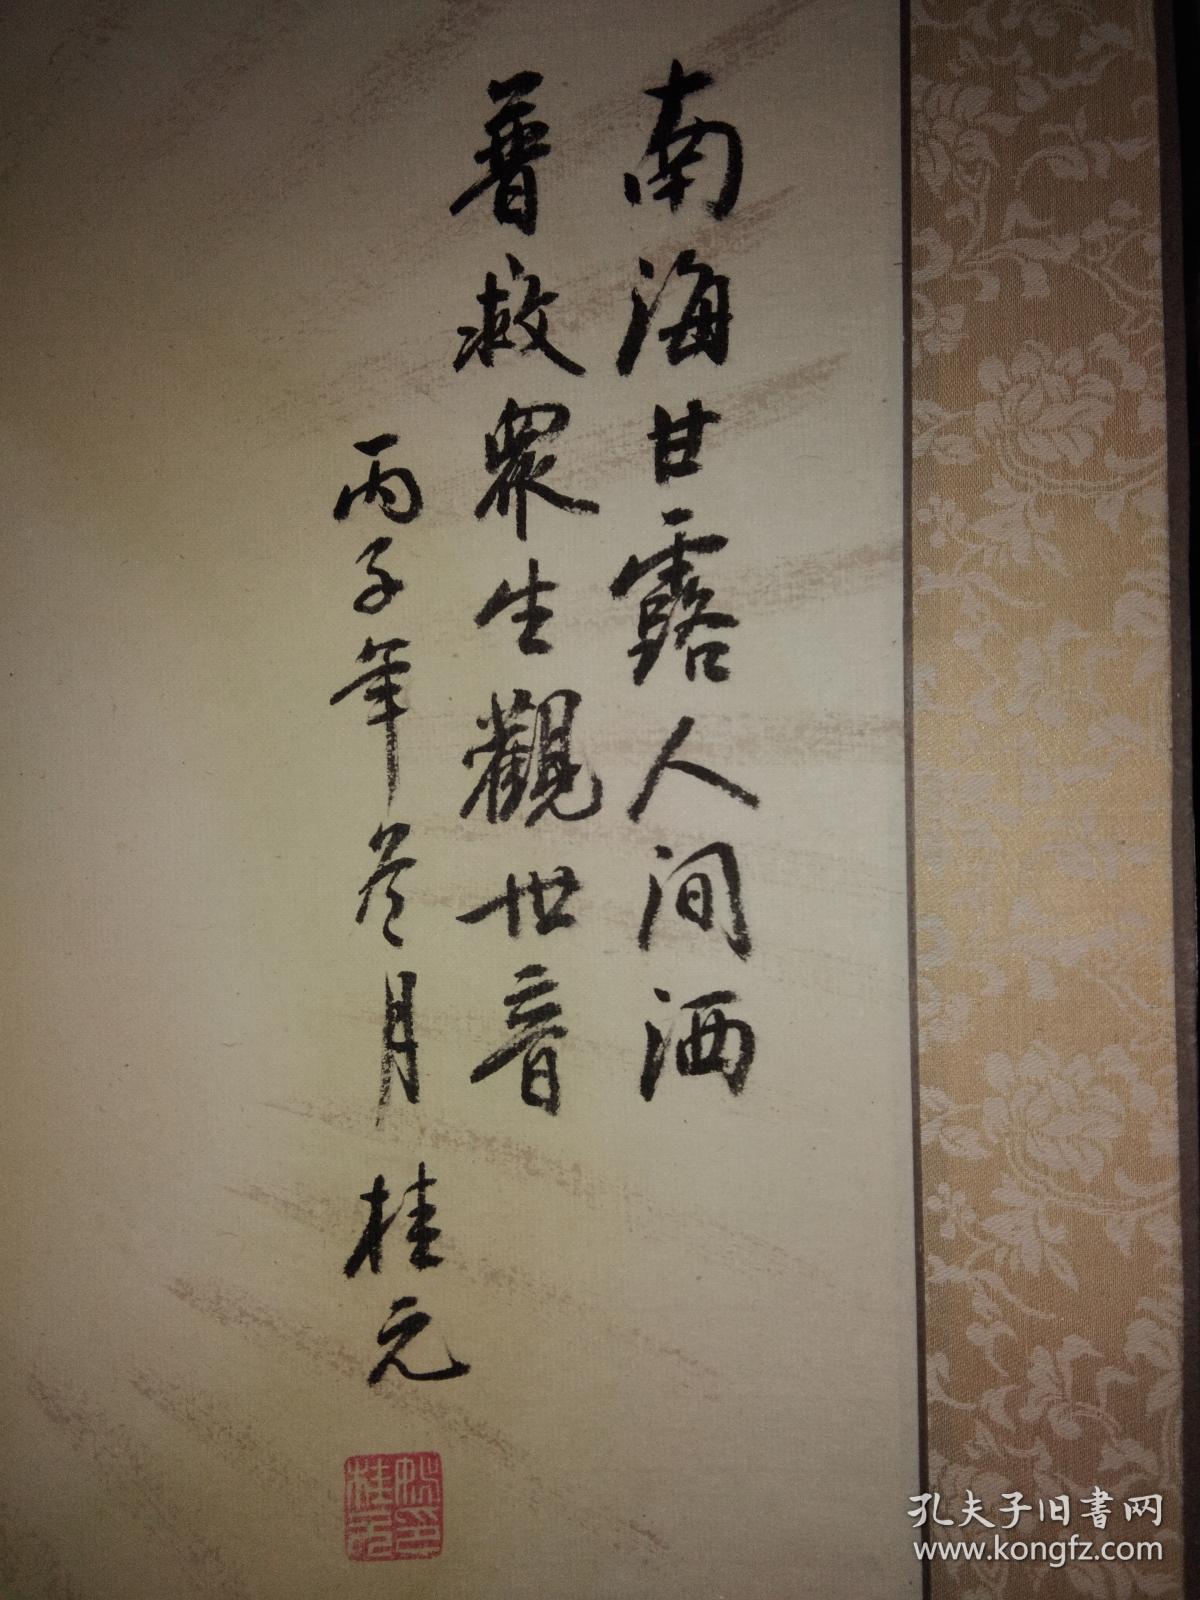 南海甘露人间洒
普救眾生觀世音
丙子年叁月 桂元
桂元
孔夫子旧書网
www.kongfz.com